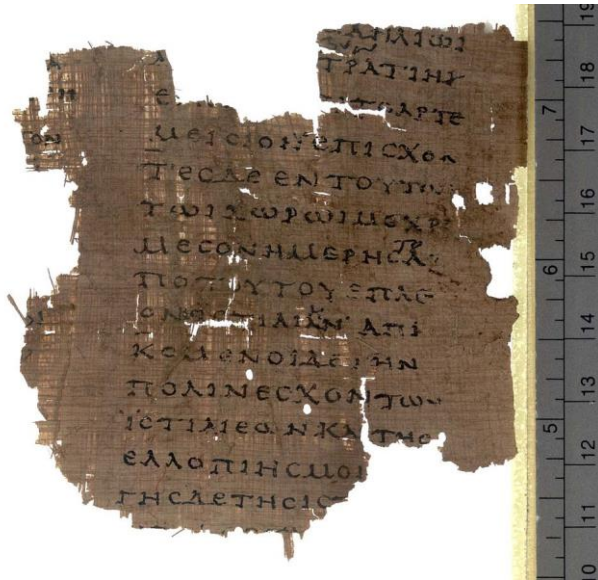 ΑΗΛΙΩΙ
ΤΡΑΤΙΗ
ΙΤΟΑΡΤΕ
ΜΕΙϹΙΟΝ ΕΠΙϹΧΟΝ
ΤΕϹΔΕΕΝΤΟΥΤΩ
ΤΩΙΧΩΡΩΙΜΕΧΡΙ
ΜΕϹΟΝΗΜΕΡΗϹΑ
ΠΟΤΟΥΤΟΥΕΠΛΕ
ΟΝΕϹΤΙΑΙΑΝ ΑΠΙ
ΚΟΜΕΝΟΙΔΕΤΗΝ
ΠΟΛΙΝΕϹΧΟΝΤΩΝ
ΙϹΤΙΑΙΕΩΝΚΑΙΤΗϹ
ΕΛΛΟΠΙΗϹΜΟΙ
ΓΗϹΔΕΤΗϹΙϹ
ΟΝ
ΟΙ
7
6
5
19
18
17
16
15
14
13
12
11
10